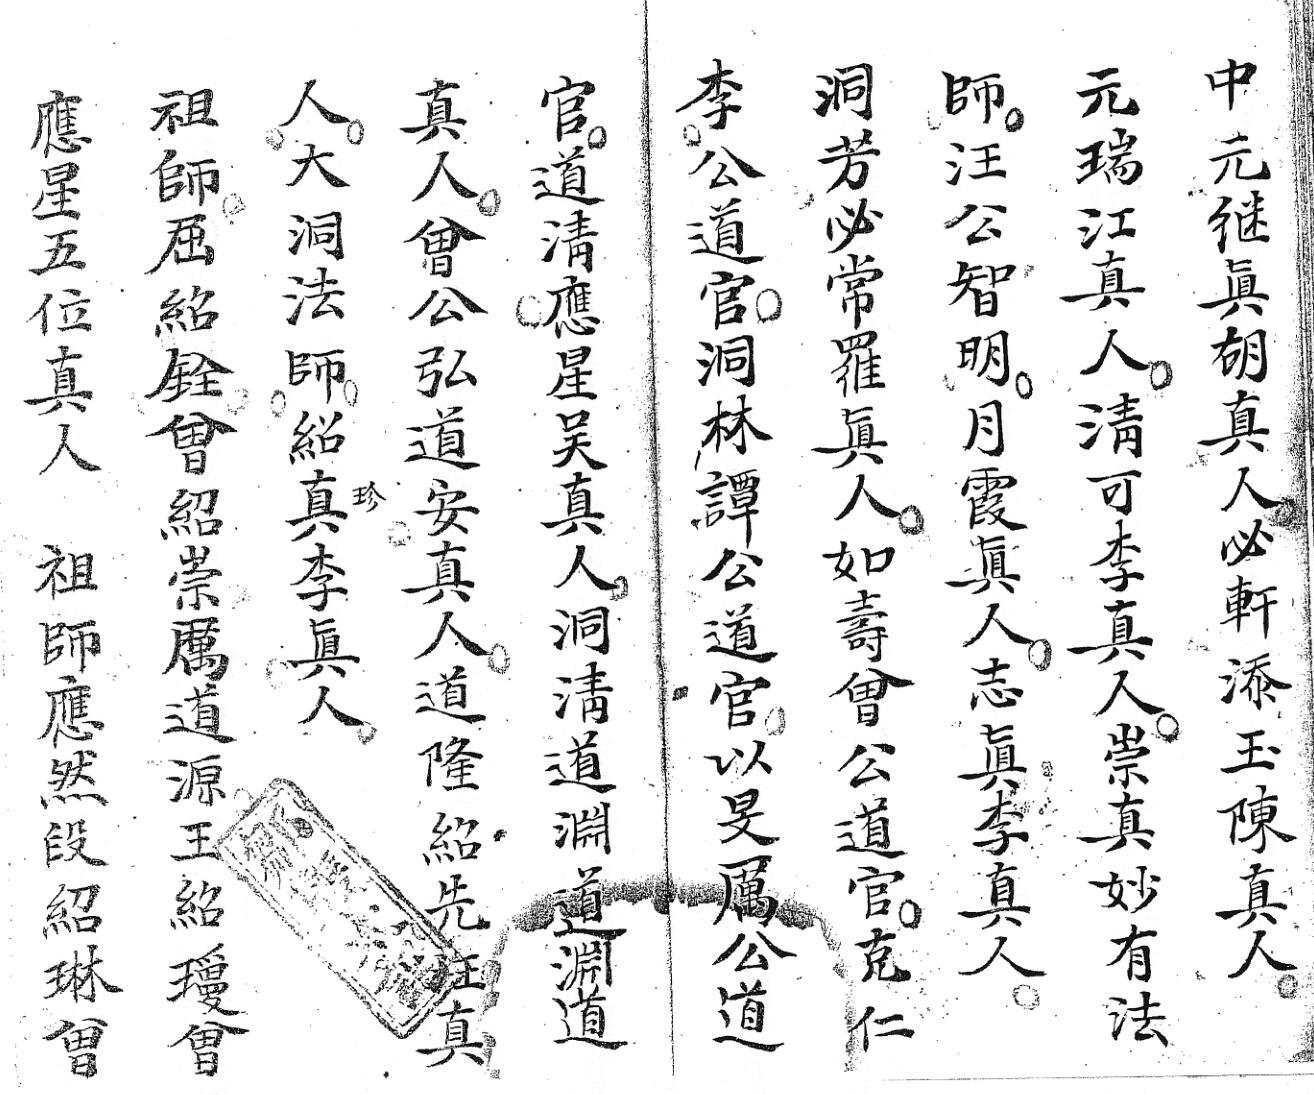 中元继眞胡真人必軒添玉陳真人
元瑞江真人清可李真人崇真妙有法
師汪公智明月霞眞人志眞李真人
洞芳必常羅眞人如壽曾公道官克仁
李公道官洞林譚公道官以旻厲公道
官道清應星吴真人洞清道淵道淵道
真人曾公弘道安真人道隆紹先汪真
人大洞法師紹真珍李眞人
祖師屈紹銓曾紹崇厲道源王紹瓊曾
應星五位真人 祖師應然段紹琳曾